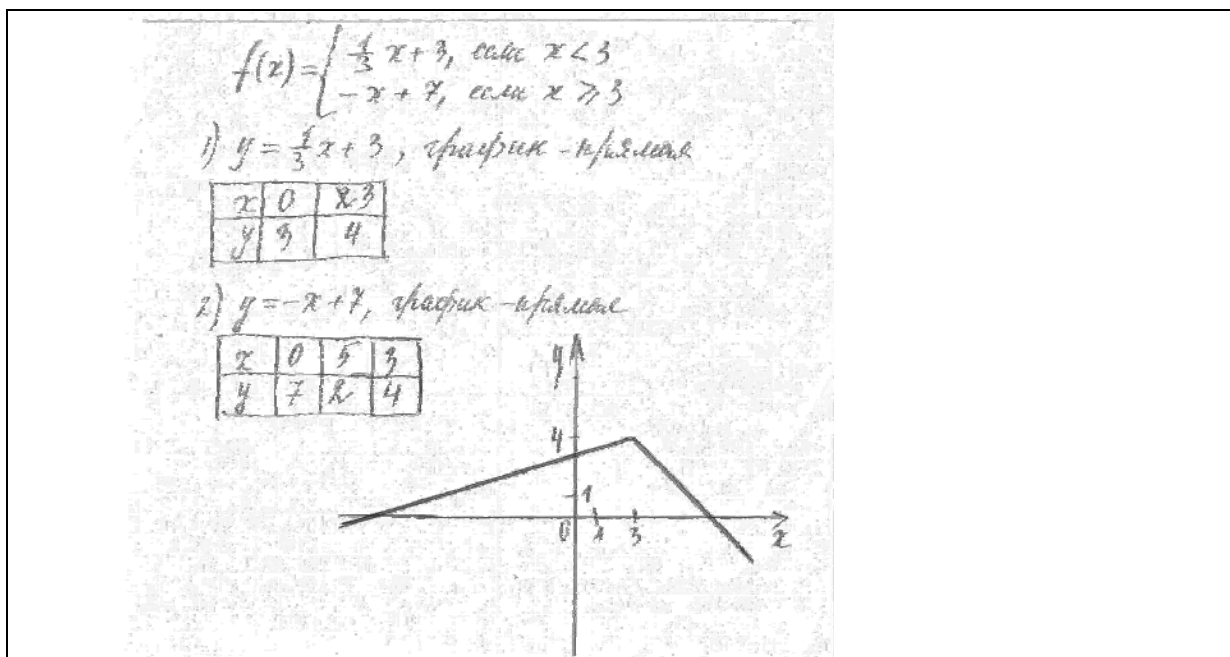 f(x) = { 1/3 x + 3, если x < 3
- x + 7, если x ⩾ 3
1) y = 1/3 x + 3, график - прямая
x 0 3
y 3 4
2) y = -x + 7, график - прямая
x 0 5 3
y 7 2 4
y
4
1
0 1 3 x